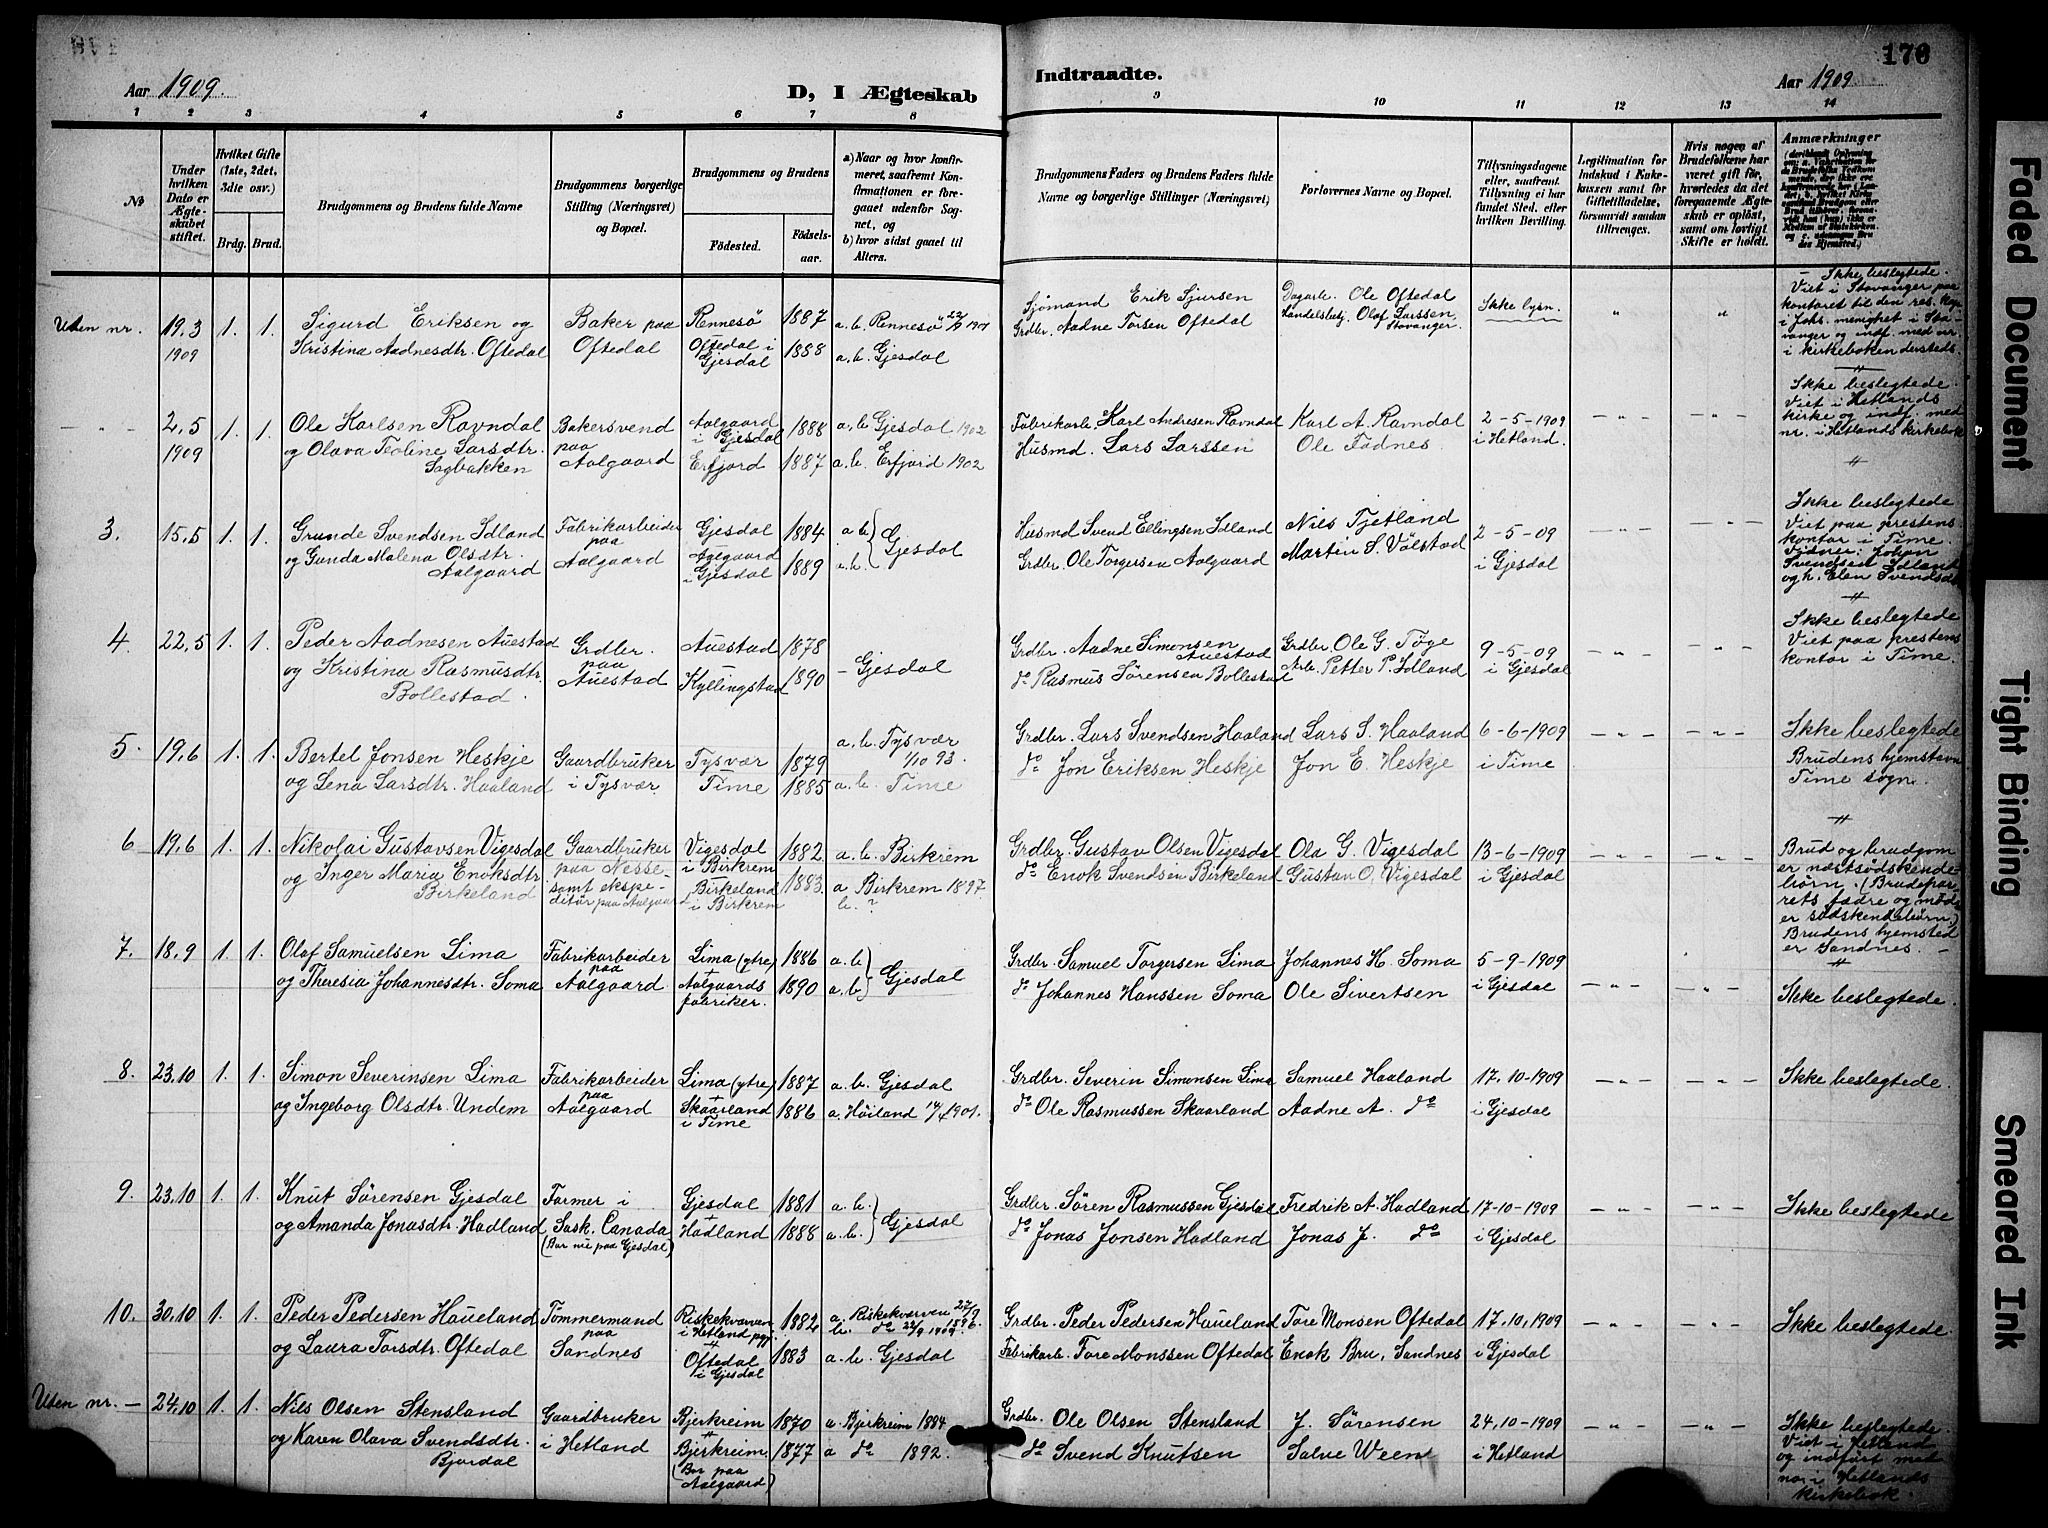 Aar 1909.
D, I Ægteskab
Indtraadte.
Aar 1909.
176
1 2 3 4 5 6 7 8 9 10 11 12 13 14
No
Under hvilken Dato er Ægteskabet stiftet.
Hvilket Gifte (1ste, 2det, 3die osv.)
Brdg. Brud.
Brudgommens og Brudens fulde Navne
Brudgommens borgerlige Stilling (Næringsvei) og Bopæl.
Brudgommens og Brudens
Fødested.
Fødsels-aar.
a) Naar og hvor konfirmeret, saafremt Konfirmationen er foregaaet udenfor Sognet, og
b) hvor sidst gaaet til Alters.
Brudgommens Faders og Brudens Faders fulde Navne og borgerlige Stillinger (Næringsvei)
Forlovernes Navne og Bopæl.
Tillysningsdagene eller, saafremt Tillysning ei har fundet Sted, efter hvilken Bevilling.
Legitimation for Indskud i Enkekassen samt for Giftetilladelse, forsaavidt saadan tiltrænges.
Hvis nogen af Brudefolkene har været gift før, hvorledes da det foregaaende Ægteskab er opløst, samt om lovligt Skifte er holdt.
Anmærkninger
Uden nr. 19,3 1909 1. 1. Sigurd Eriksen og Baker paa Rennesø 1887 a. b. Rennesö
Kristina Aadnesdtr. Oftedal Oftedal Oftedal i Gjesdal 1888 a. b. Gjesdal
Sjømand Erik Sjursen Dagarb. Ole Oftedal Ikke lysn.
Grdbr. Aadne Torsen Oftedal Handelsbetj. Olaf Larssen Stavanger.
Ikke beslegtede.
Viet i Stavanger paa
kontoret til den res. kap.
i Joh's menighet i Sta-
vanger og indf. med nr.
i kirkeboken dersteds.
— " — 2,5 1909 1. 1. Ole Karlsen Ravndal Bakersvend Aalgaard i Gjesdal 1888 a. b. Gjesdal 1902
og Olava Teoline Larsdtr. Sagbakken paa Aalgaard Erfjord 1887 a. b. Erfjord 1902
Fabrikarb. Karl Andresen Ravndal Karl A. Ravndal 2-5-1909
Husmd. Lars Larssen Ole Fadnes i Hetland.
Ikke beslegtede.
Viet i Hetlands
kirke og indf. med
nr. i Hetlands kirkebok
3. 15,5 1. 1. Grunde Svendsen Idland Fabrikarbeider Gjesdal 1884 a b
og Gunda Malena Olsdtr. Aalgaard paa Aalgaard Aalgaard i Gjesdal 1889 a. b. Gjesdal
Husmd Svend Ellingsen Idland Nils Tjetland 2-5-09
Grdbr. Ole Torgersen Aalgaard Martin S. Völstad i Gjesdal
Ikke beslegtede
Viet paa prestens
kontor i Time.
Vidner: Johan
Svendsen Idland
og h. Elen Svendsdtr
4. 22,5 1. 1. Peder Aadnesen Auestad Grdbr. Auestad 1878
og Kristina Rasmusdtr. Bollestad. paa Auestad Kyllingstad 1890 — Gjesdal
Grdbr. Aadne Simonsen Auestad Grdbr. Ole G. Tøge 9-5-09
do Rasmus Sørensen Bollestad Arb. Petter P. Idland i Gjesdal
Ikke beslegtede
Viet paa prestens
kontor i Time.
5. 19,6 1. 1. Bertel Jonsen Heskje Gaardbruker Tysvær 1879 a. b. Tysvær 1/10 93.
og Lena Larsdtr. Haaland i Tysvær Time 1885 a. b. Time
Grdbr. Lars Svendsen Haaland Lars S. Haaland 6-6-1909
do Jon Eriksen Heskje Jon E. Heskje i Time
Ikke beslegtede
Brudens hjemstavn
Time sogn.
6 19,6 1. 1. Nikolai Gustavsen Vigesdal Gaardbruker Vigesdal i Birkrem 1882 a. b. Birkrem
og Inger Maria Enoksdtr Birkeland paa Nesse samt ekspeditör paa Aalgaard Birkeland i Birkrem 1883. a Birkrem 1897. b. ?
Grdbr. Gustav Olsen Vigesdal Ola G. Vigesdal 13-6-1909
do Enok Svendsen Birkeland Gustav O. Vigesdal i Gjesdal
Brud og brudgom
er næstsødskende-
börn. (Brudepar-
rets fædre og mödre
er södskendebörn.)
Brudens hjemsted
er Sandnes.
7. 18,9 1. 1. Olaf Samuelsen Lima Fabrikarbeider Lima (ytre) 1886 a. b
og Theresia Johannesdtr. Soma paa Aalgaard Aalgaards fabriker. 1890 a. b. Gjesdal
Grdbr. Samuel Torgersen Lima Johannes H. Soma 5-9-1909
do Johannes Hanssen Soma Ole Sivertsen i Gjesdal
Ikke beslegtede.
8. 23,10 1. 1. Simon Severinsen Lima Fabrikarbeider Lima (ytre) 1887 a. b. Gjesdal
og Ingeborg Olsdtr. Undem paa Aalgaard Skaarland i Time 1886 a. Høiland 1901.
Grdbr. Severin Simonsen Lima Samuel Haaland 17,10-1909
do Ole Rasmussen Skaarland Aadne A. do i Gjesdal
Ikke beslegtede.
9. 23,10 1. 1. Knut Sørensen Gjesdal Farmer i Gjesdal 1881 a. b.
og Amanda Jonasdtr. Hadland Sask. Canada (Bor nu paa Gjesdal) Hadland 1888 a. b. Gjesdal
Grdbr. Sören Rasmussen Gjesdal Fredrik A. Hadland 17-10-1909
do Jonas Jonsen Hadland Jonas J. do i Gjesdal
Ikke beslegtede
10. 30,10 1. 1. Peder Pedersen Haueland Tömmermand Riskekvarven i Hetland pgj. 1882 a. Riskekværven 27/9 1896.
og Laura Torsdtr. Oftedal paa Sandnes Oftedal i Gjesdal 1883 a. b. Gjesdal
Grdbr. Peder Pedersen Haueland Tore Monsen Oftedal 17,10,1909
Fabrikarb. Tore Monssen Oftedal Enok Bru, Sandnes i Gjesdal
Ikke beslegtede.
Uten nr. — 24,10 1. 1. Nils Olsen Stensland Gaardbruker Bjerkreim 1870 a. Bjerkreim 1884
og Karen Olava Svendsdtr. Bjordal i Hetland Bjerkreim. (Bor paa Aalgaard) 1877 a do 1892.
Grdbr. Ole Olsen Stensland J. Sørensen 24,10-1909
do Svend Knutsen Salve Ween i Hetland
Ikke beslegtede.
Viet i Hetland
og indført med
no i Hetlands
kirkebok.
Faded Document
Tight Binding
Smeared Ink